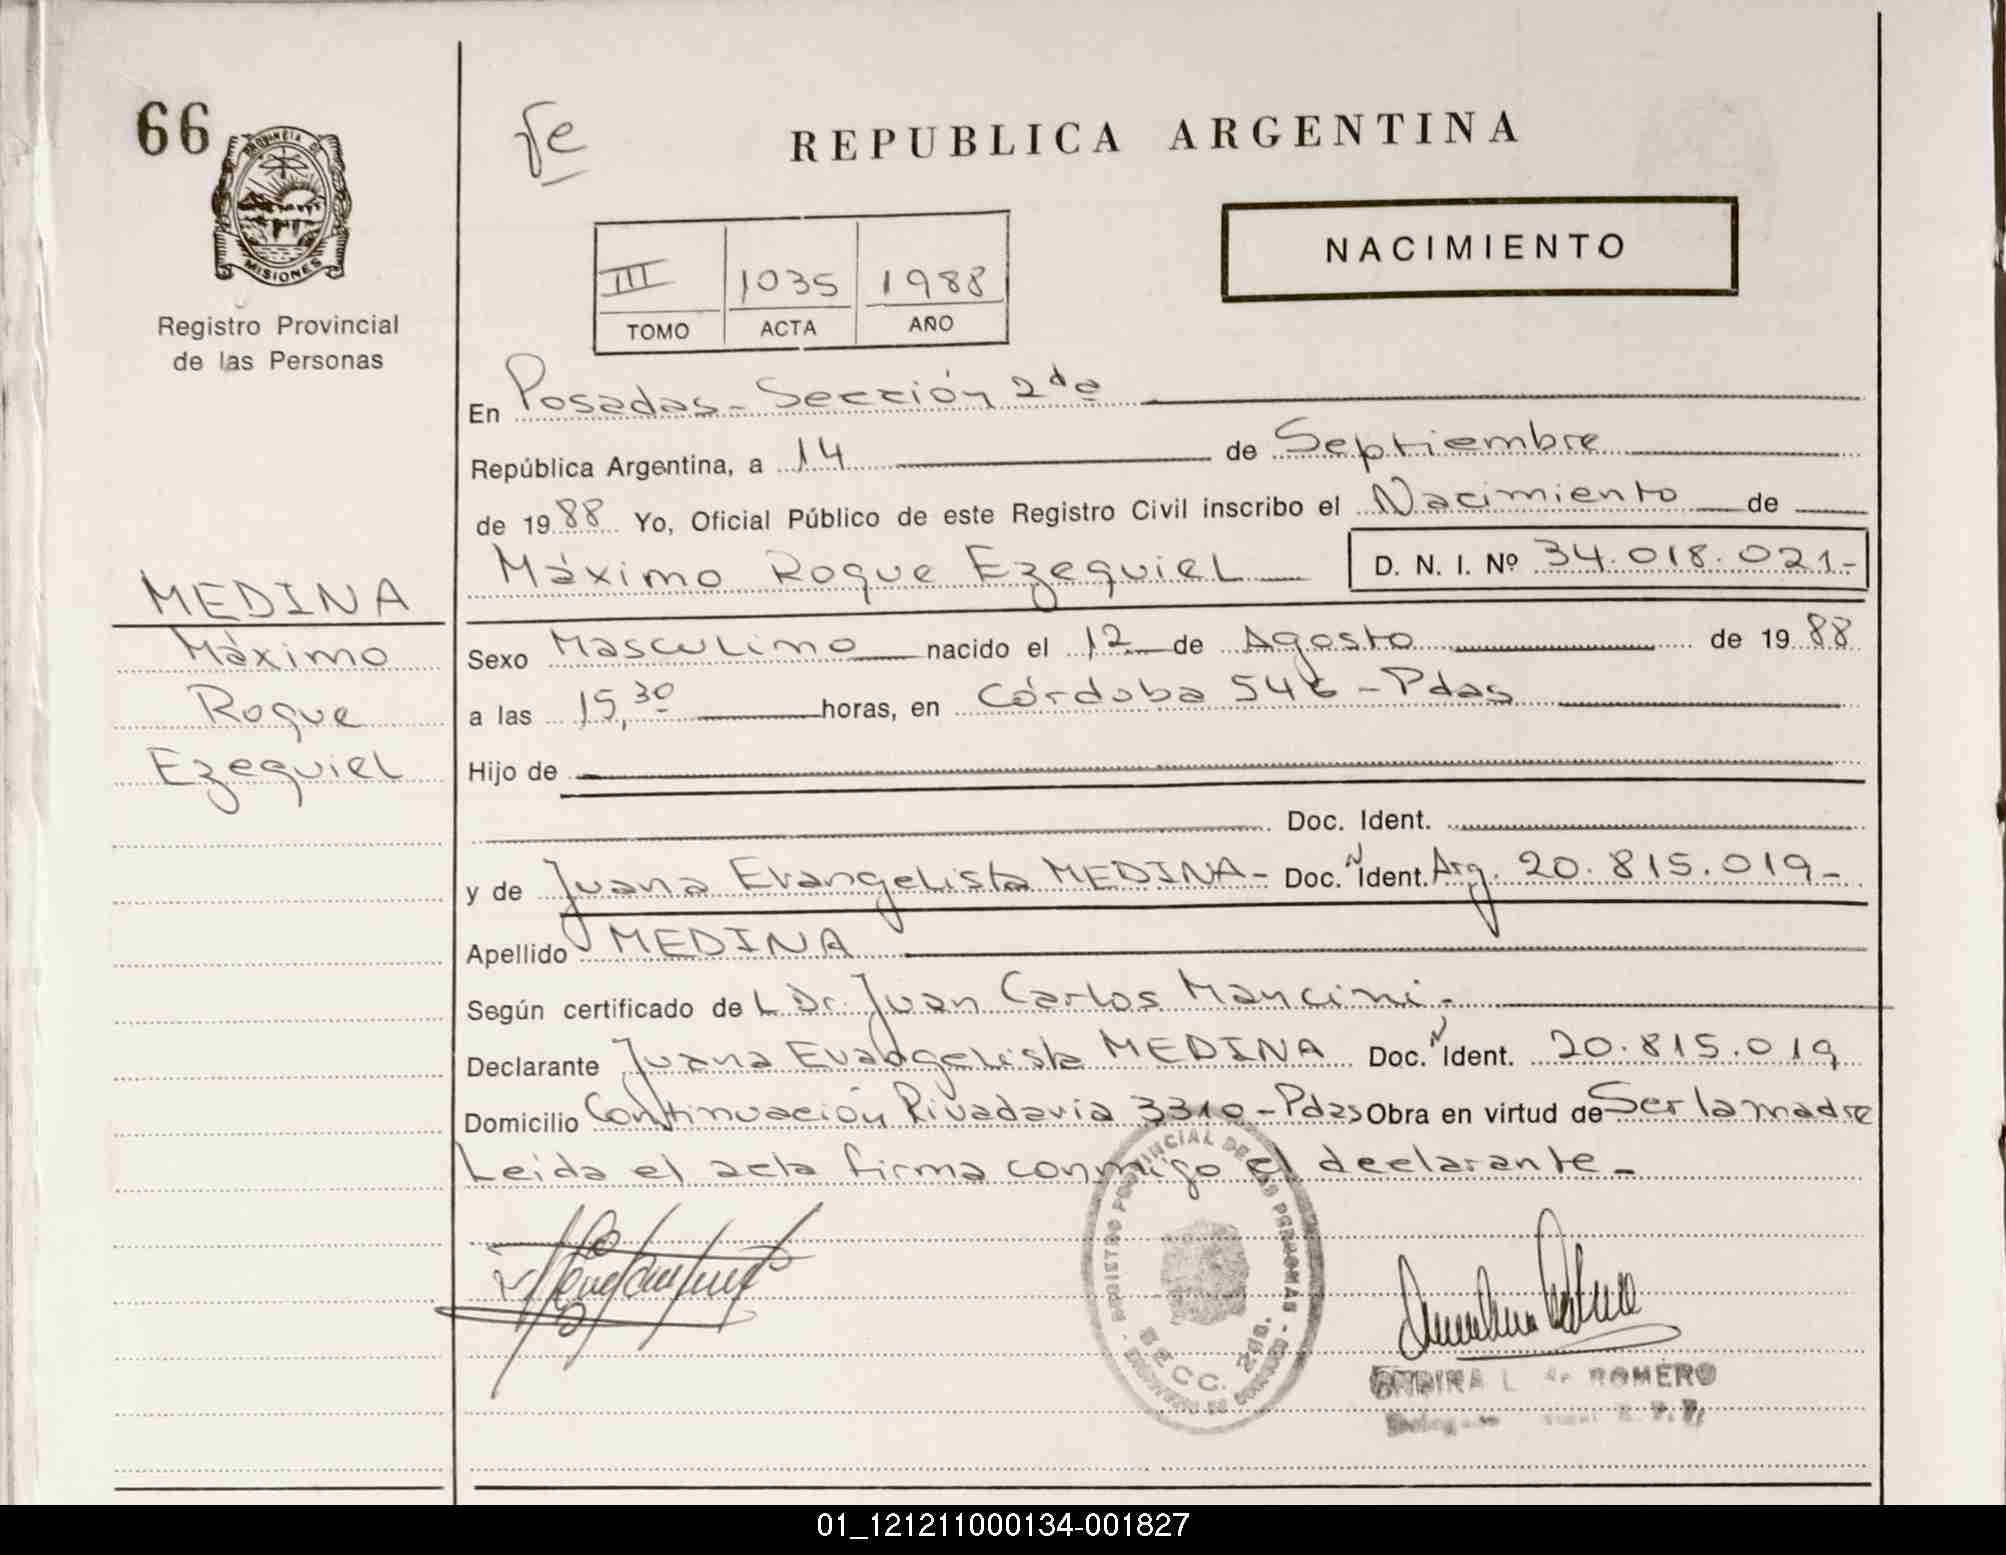 66
fe
REPUBLICA ARGENTINA
PROVINCIA DE
MISIONES
Registro Provincial
de las Personas
NACIMIENTO
III 1035 1988
TOMO ACTA AÑO
En Posadas - Sección 2da
República Argentina, a 14 de Septiembre
de 1988 Yo, Oficial Público de este Registro Civil inscribo el Nacimiento de
Máximo Roque Ezequiel D. N. I. Nº 34.018.021-
MEDINA
Máximo
Roque
Ezequiel
Sexo Masculino nacido el 12 de Agosto de 1988
a las 15,30 horas, en Córdoba 546 - Pdas
Hijo de
Doc. Ident.
y de Juana Evangelista MEDINA - Doc. Ident. Arg. 20.815.019-
Apellido MEDINA
Según certificado de L Dr. Juan Carlos Mancini.
Declarante Juana Evangelista MEDINA Doc. Ident. 20.815.019
Domicilio Continuación Rivadavia 3310 - Pdas Obra en virtud de Ser la madre
Leida el acta firma conmigo el declarante -
PROVINCIAL DE LAS PERSONAS
SECC. 2da.
L. de ROMERO
01_121211000134-001827